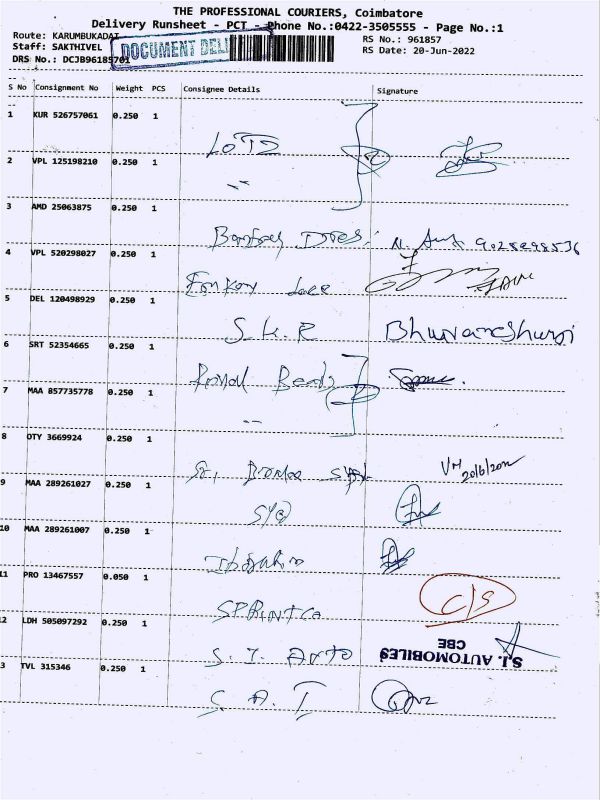 THE PROFESSIONAL COURIERS, Coimbatore
Delivery Runsheet - PCT - Phone No.:0422-3505555 - Page No.:1
Route: KARUMBUKADAI
RS No.: 961857
Staff: SAKTHIVEL
RS Date: 20-Jun-2022
DRS No.: DCJB96185701
DOCUMENT DELI
S No Consignment No Weight PCS Consignee Details Signature
1 KUR 526757061 0.250 1
LOTZ
2 VPL 125198210 0.250 1
3 AMD 25063875 0.250 1
4 VPL 520298027 0.250 1
5 DEL 120498929 0.250 1
S.K.R Bhuvaneshwari
6 SRT 52354665 0.250 1
7 MAA 857735778 0.250 1
8 OTY 3669924 0.250 1
VM 20/6/2022
9 MAA 289261027 0.250 1
10 MAA 289261007 0.250 1
Ibrahim
11 PRO 13467557 0.050 1
SPRINTCO C/S
12 LDH 505097292 0.250 1
S. I. Auto S.I. AUTOMOBILES
CBE
13 TVL 315346 0.250 1
S. A. I